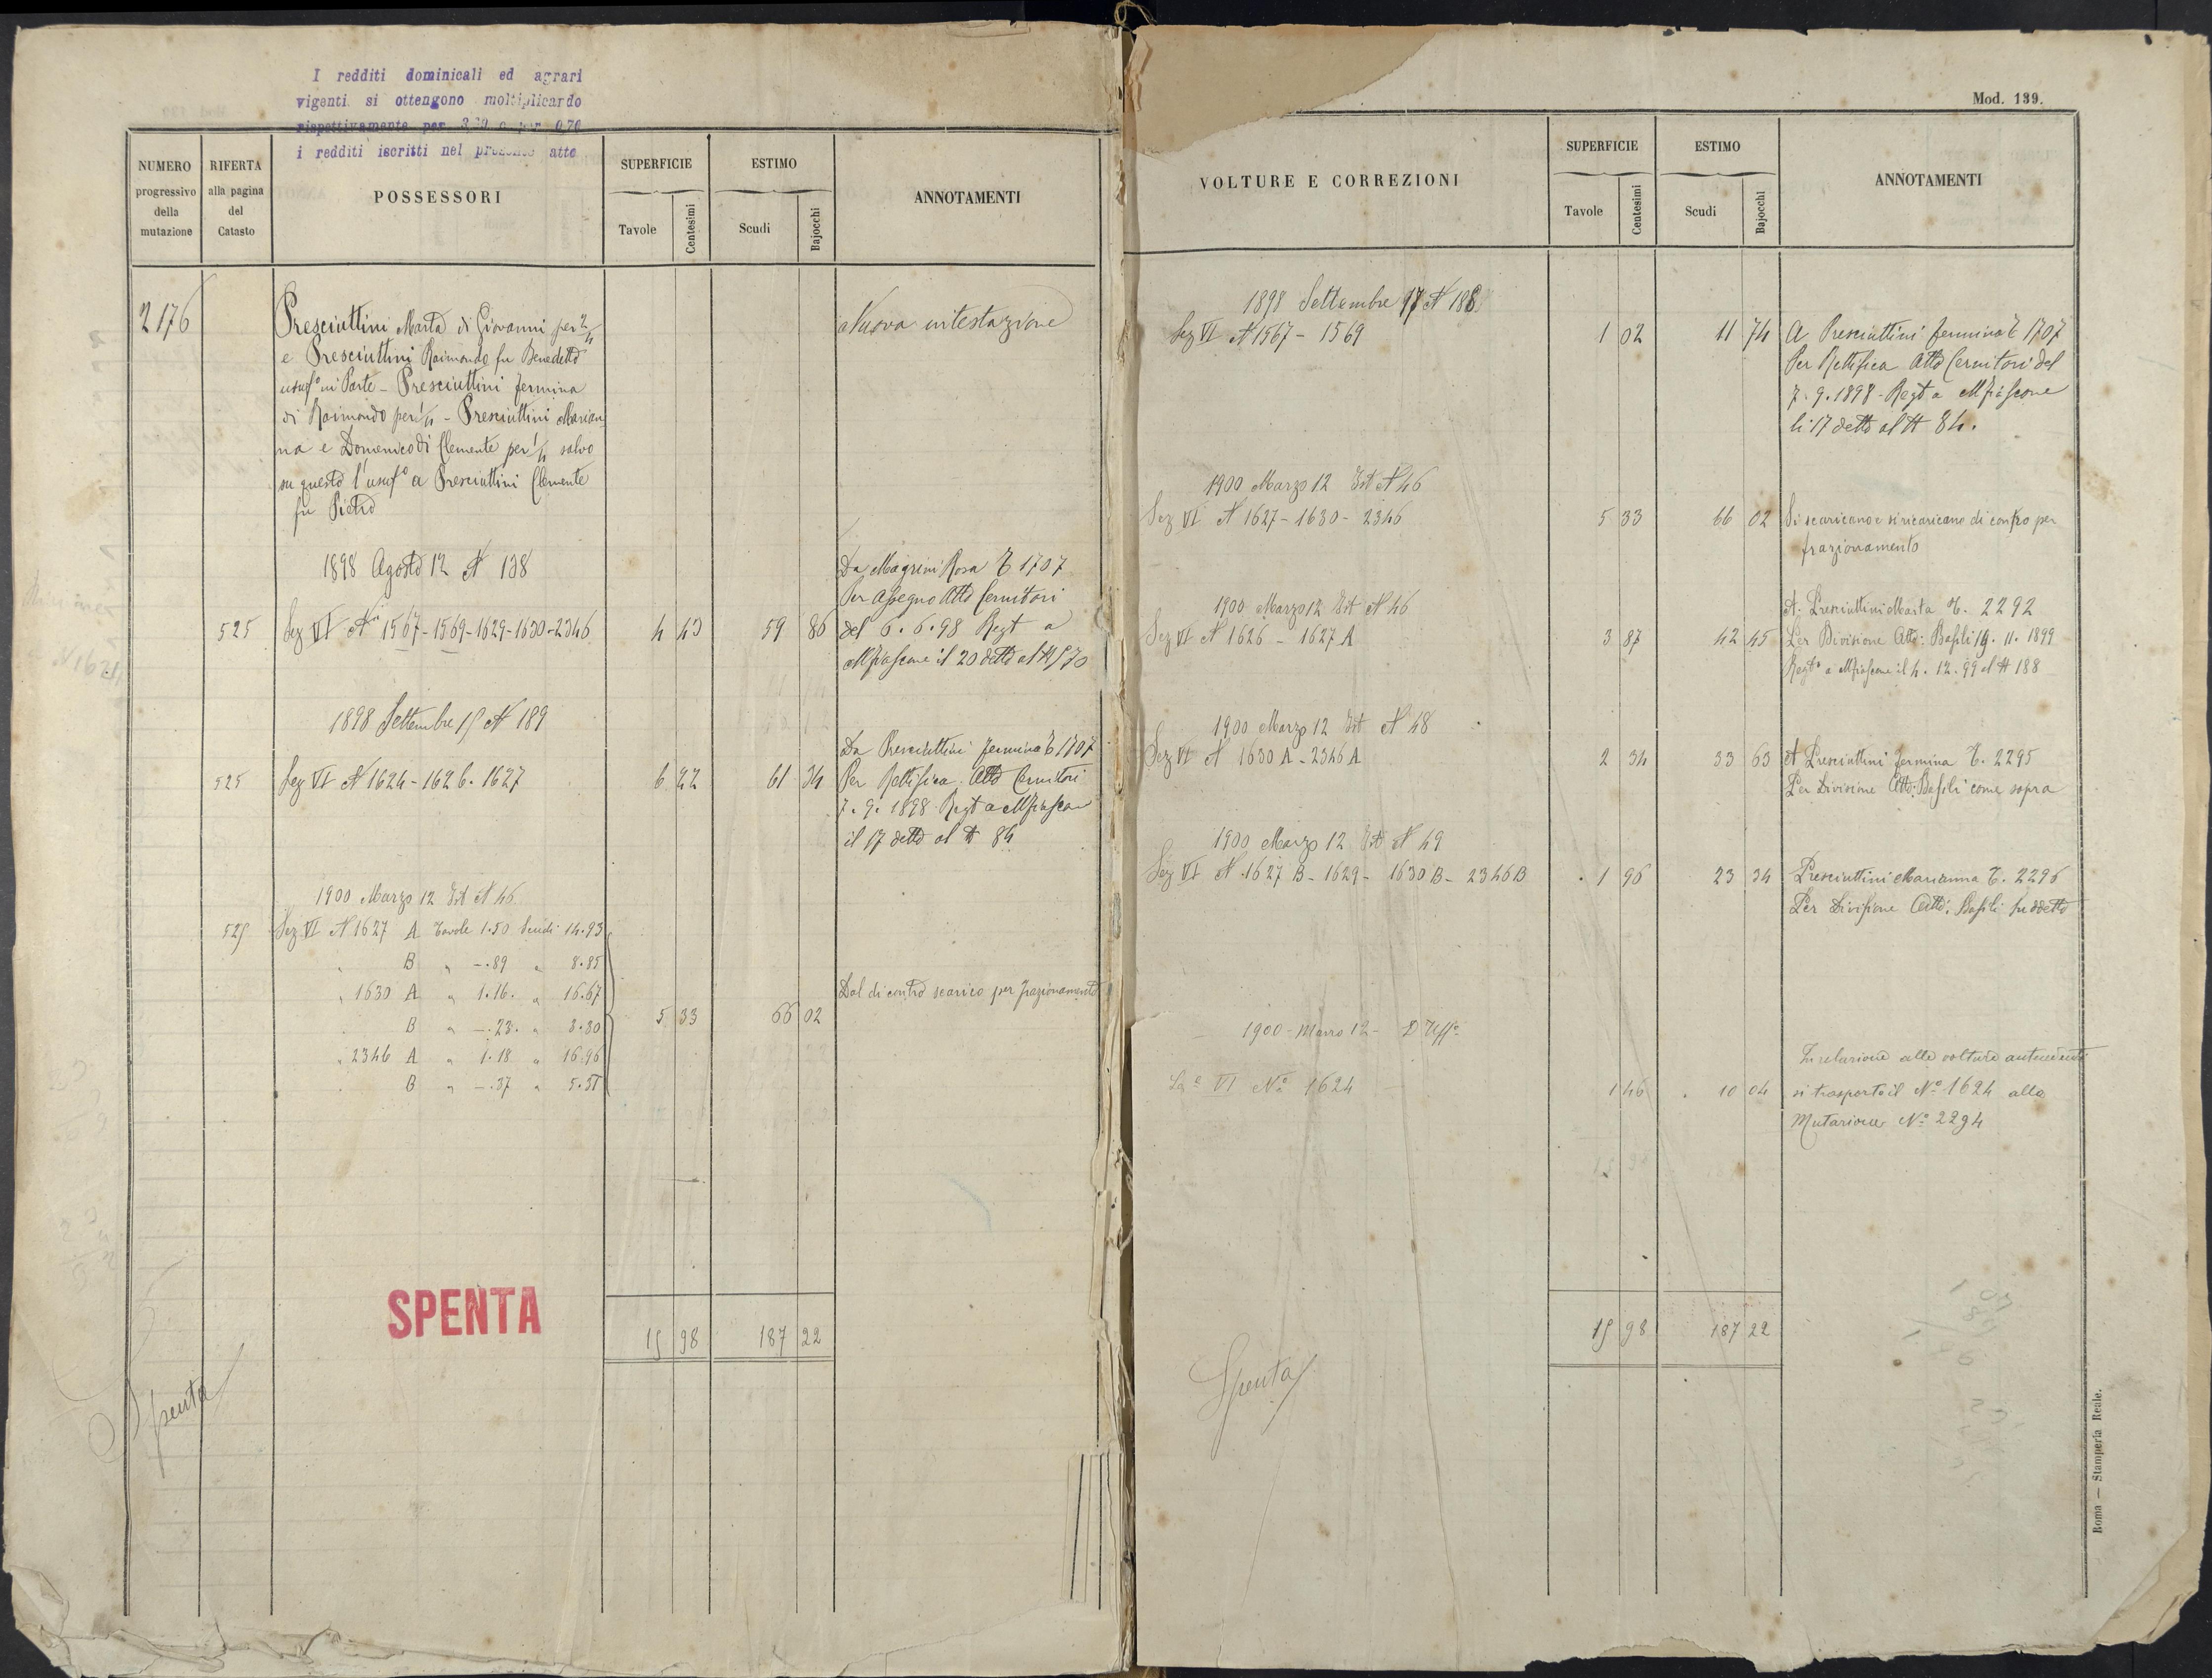 I redditi dominicali ed agrari
vigenti si ottengono moltiplicando
rispettivamente per 3,20 e per 0,70
i redditi iscritti nel presente atto
NUMERO
progressivo
della
mutazione
RIFERTA
alla pagina
del
Catasto
POSSESSORI
SUPERFICIE
Tavole
Centesimi
ESTIMO
Scudi
Bajocchi
ANNOTAMENTI
2176
Presciuttini Marta di Giovanni per 2/4
e Presciuttini Raimondo fu Benedetto
usufo in Parte - Presciuttini Fermina
di Raimondo per 1/4 - Presciuttini Marian
na e Domenico di Clemente per 1/4 salvo
su questo l'usufo a Presciuttini Clemente
fu Pietro
Nuova intestazione
1898 Agosto 12 N 138
525 Sez VI Ni 1567-1569-1629-1630-2346 4 43 59 86
Da Magrini Rosa T 1707
Per Assegno Atto Cernitori
del 6.6.98 Regt a
Mfiascone il 20 detto al N 570
1898 Settembre 15 N 189
525 Sez VI N 1624-1626-1627 6 22 61 34
Da Presciuttini Fermina T 1707
Per Rettifica Atto Cernitori
7.9.1898 Regt a Mfiascone
il 17 detto al N 84
1900 Marzo 12 Est N 46
525 Sez VI N 1627 A Tavole 1.50 Scudi 14.93
B " -.89 " 8.85
" 1630 A " 1.16. " 16.67
B " -.23. " 3.30
" 2346 A " 1.18 " 16.96
B " -.37 " 5.31
5 33 66 02
Dal di contro scarico per frazionamento
SPENTA
15 98 187 22
Spenta
Mod. 139.
VOLTURE E CORREZIONI
SUPERFICIE
Tavole
Centesimi
ESTIMO
Scudi
Bajocchi
ANNOTAMENTI
1898 Settembre 17 N 188
Sez VI N 1567 - 1569 1 02 11 74
A Presciuttini Fermina T 1707
Per Rettifica Atto Cernitori del
7.9.1898 - Regt a Mfiascone
li 17 detto al N 84.
1900 Marzo 12 Est N 46
Sez VI N 1627-1630-2346 5 33 66 02
Si scaricano e si ricaricano di contro per
frazionamento
1900 Marzo 12 Est N 46
Sez VI N 1626 - 1627 A 3 87 42 45
A. Presciuttini Marta T. 2292
Per Divisione Atto: Basili 19.11.1899
Regto a Mfiascone il 4.12.99 al N 188
1900 Marzo 12 Est N 48
Sez VI N 1630 A - 2346 A 2 34 33 63
A Presciuttini Fermina T. 2295
Per Divisione Atto: Basili come sopra
1900 Marzo 12 Est N 49
Sez VI N 1627 B - 1629 - 1630 B - 2346 B 1 96 23 34
Presciuttini Marianna T. 2296
Per Divisione Atto: Basili suddetto
1900 - Marzo 12 - D'Uffo
Sne VI No 1624 1 46 10 04
In relazione alle volture antecedenti
si trasporta il No 1624 alla
Mutazione No 2294
15 98 187 22
Spenta
Roma — Stamperia Reale.